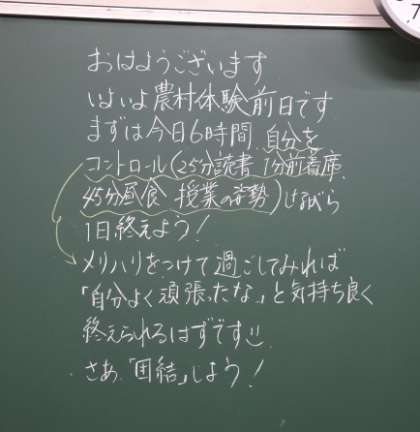 おはようございます
いよいよ農村体験前日です
まずは今日6時間 自分を
コントロール(25分読書 1分前着席
45分昼食 授業の姿勢)しながら
1日終えよう!
メリハリをつけて過ごしてみれば
「自分よく頑張ったな。」と気持ち良く
終えられるはずです
さあ「団結」しよう!
7